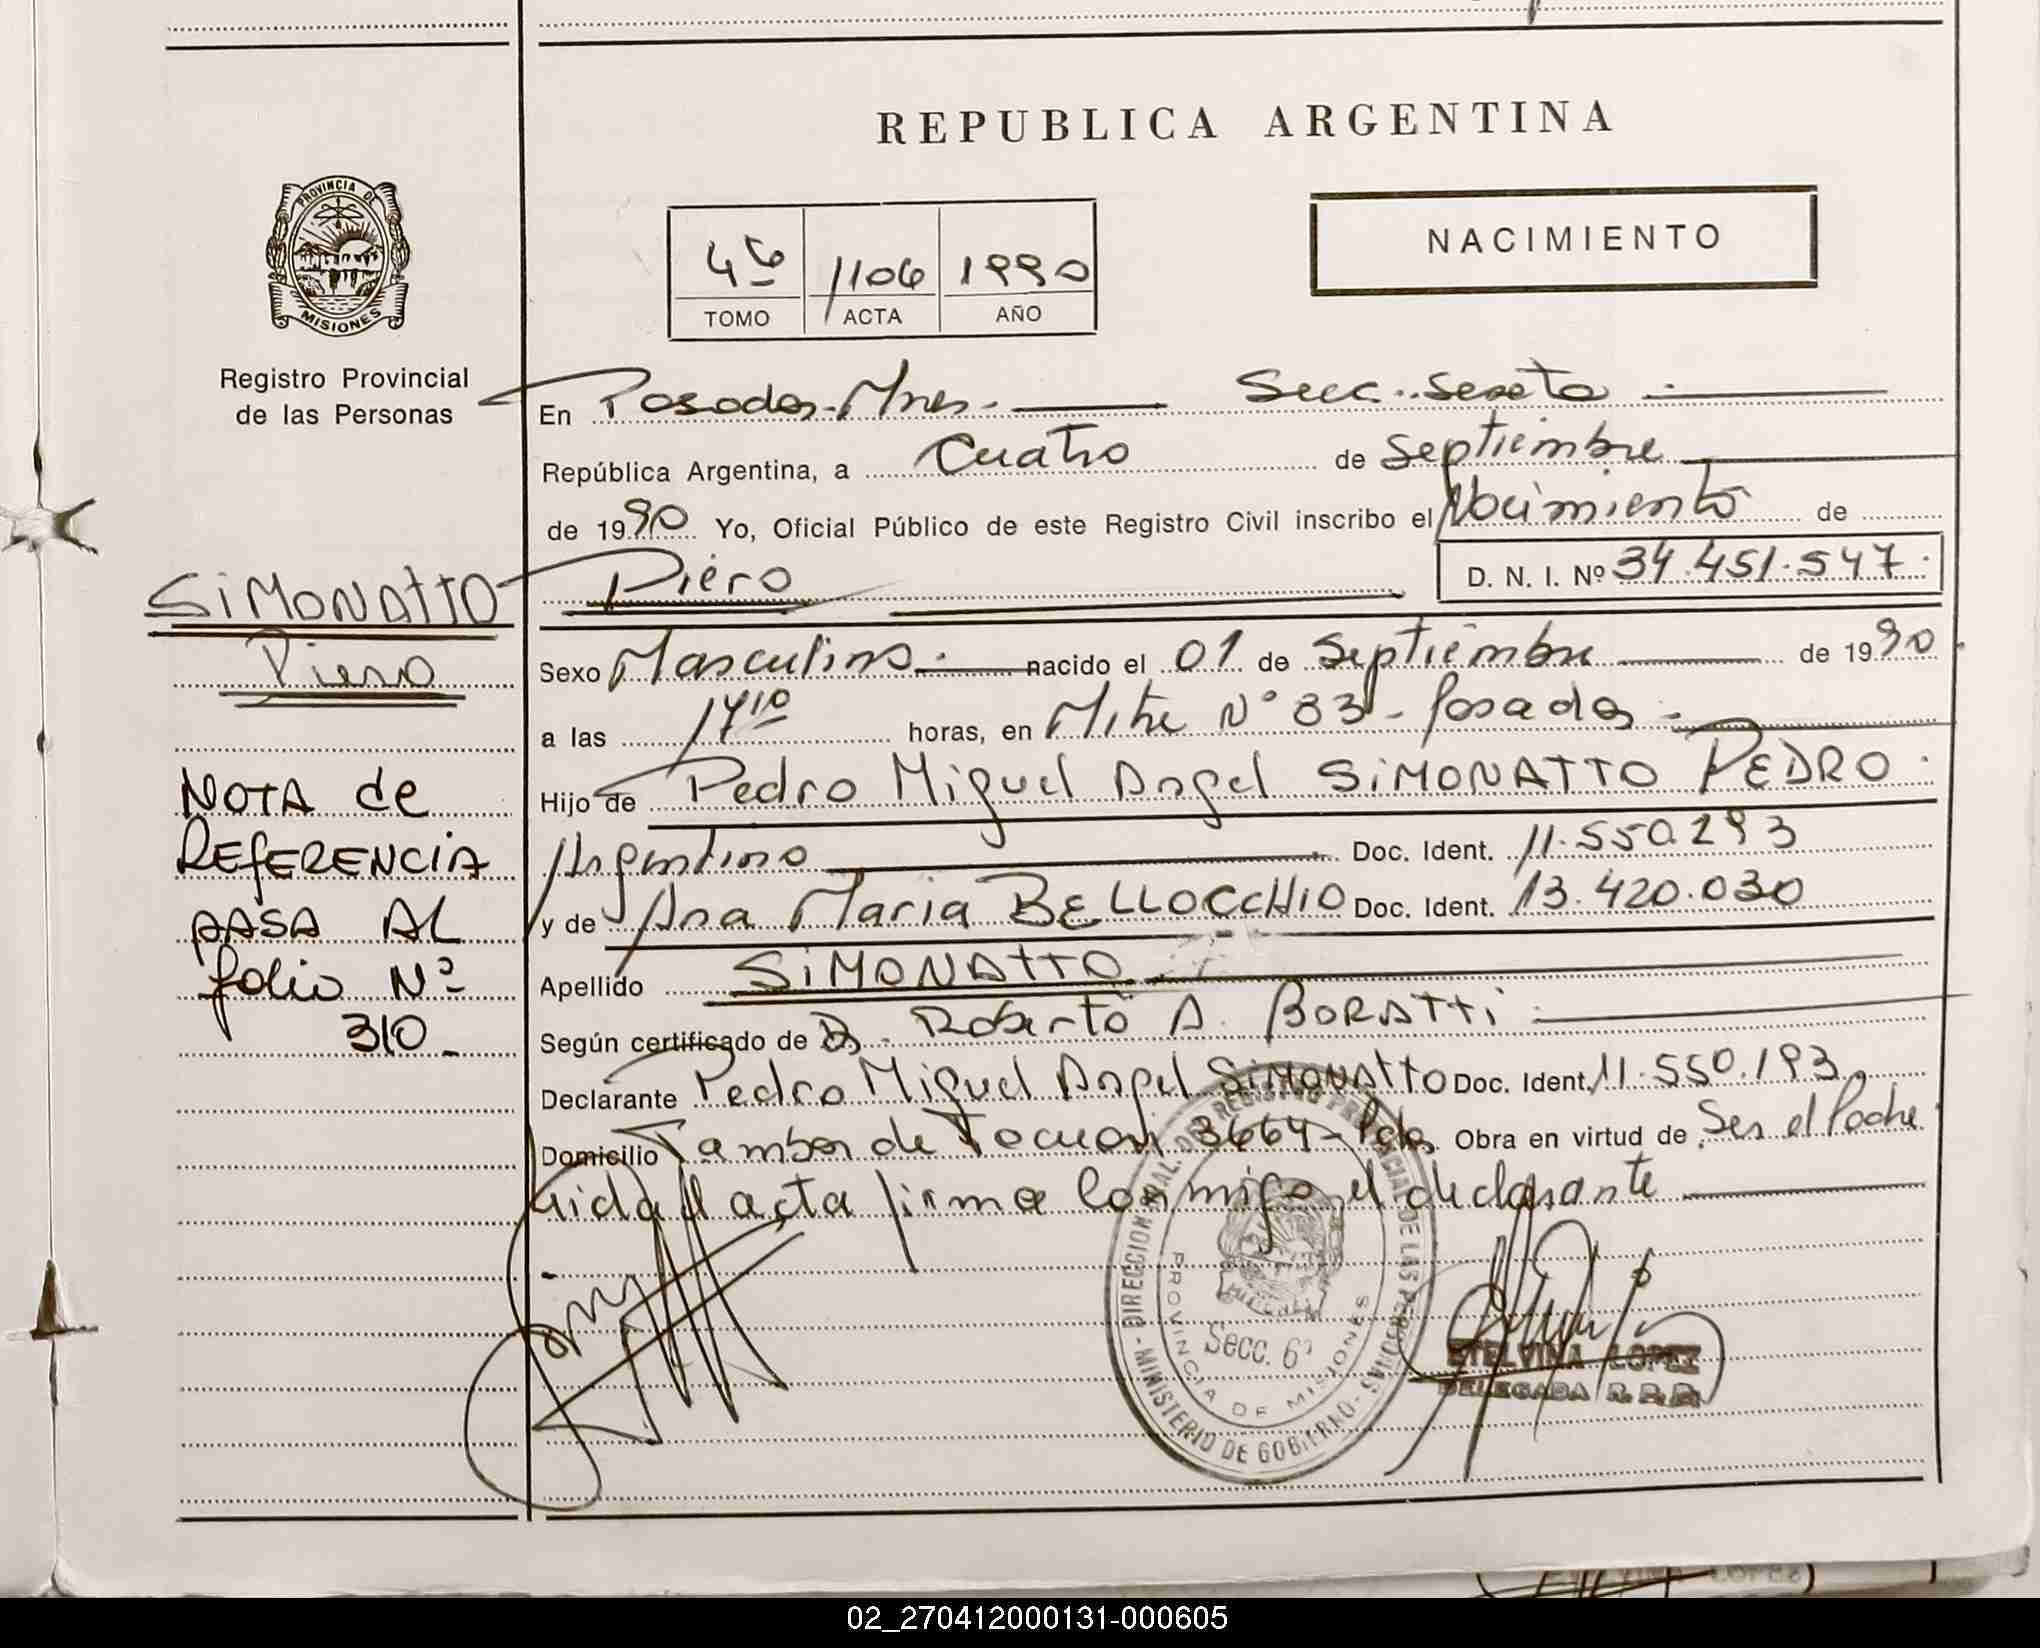 REPUBLICA ARGENTINA
PROVINCIA DE
MISIONES
Registro Provincial
de las Personas
4to 1106 1990
TOMO ACTA AÑO
NACIMIENTO
En Posadas-Mnes.- Secc. Sexta.-
República Argentina, a Cuatro de Septiembre
de 1990 Yo, Oficial Público de este Registro Civil inscribo el Nacimiento de
Piero
D. N. I. Nº 34.451.547.
Sexo Masculino.- nacido el 01 de Septiembre de 1990
a las 17 10 horas, en Mitre Nº 83 - Posadas.-
Hijo de Pedro Miguel Angel SIMONATTO PEDRO.
Argentino Doc. Ident. 11.550.293
y de Ana Maria BELLOCCHIO Doc. Ident. 13.420.030
Apellido SIMONATTO
Según certificado de Roberto A. BORATTI
Declarante Pedro Miguel Angel SIMONATTO Doc. Ident. 11.550.193
Domicilio Tambor de Tacuari 3664 - Pdas. Obra en virtud de Ser el Padre
Leida el acta firma conmigo el declarante
SIMONATTO
Piero
NOTA de
REFERENCIA
PASA AL
folio Nº
310
DIRECCION GRAL. DE REGISTRO PROVINCIAL DE LAS PERSONAS
MINISTERIO DE GOBIERNO
PROVINCIA DE MISIONES
Secc. 6ª
ETELVINA LOPEZ
DELEGADA R.P.P.
02_270412000131-000605